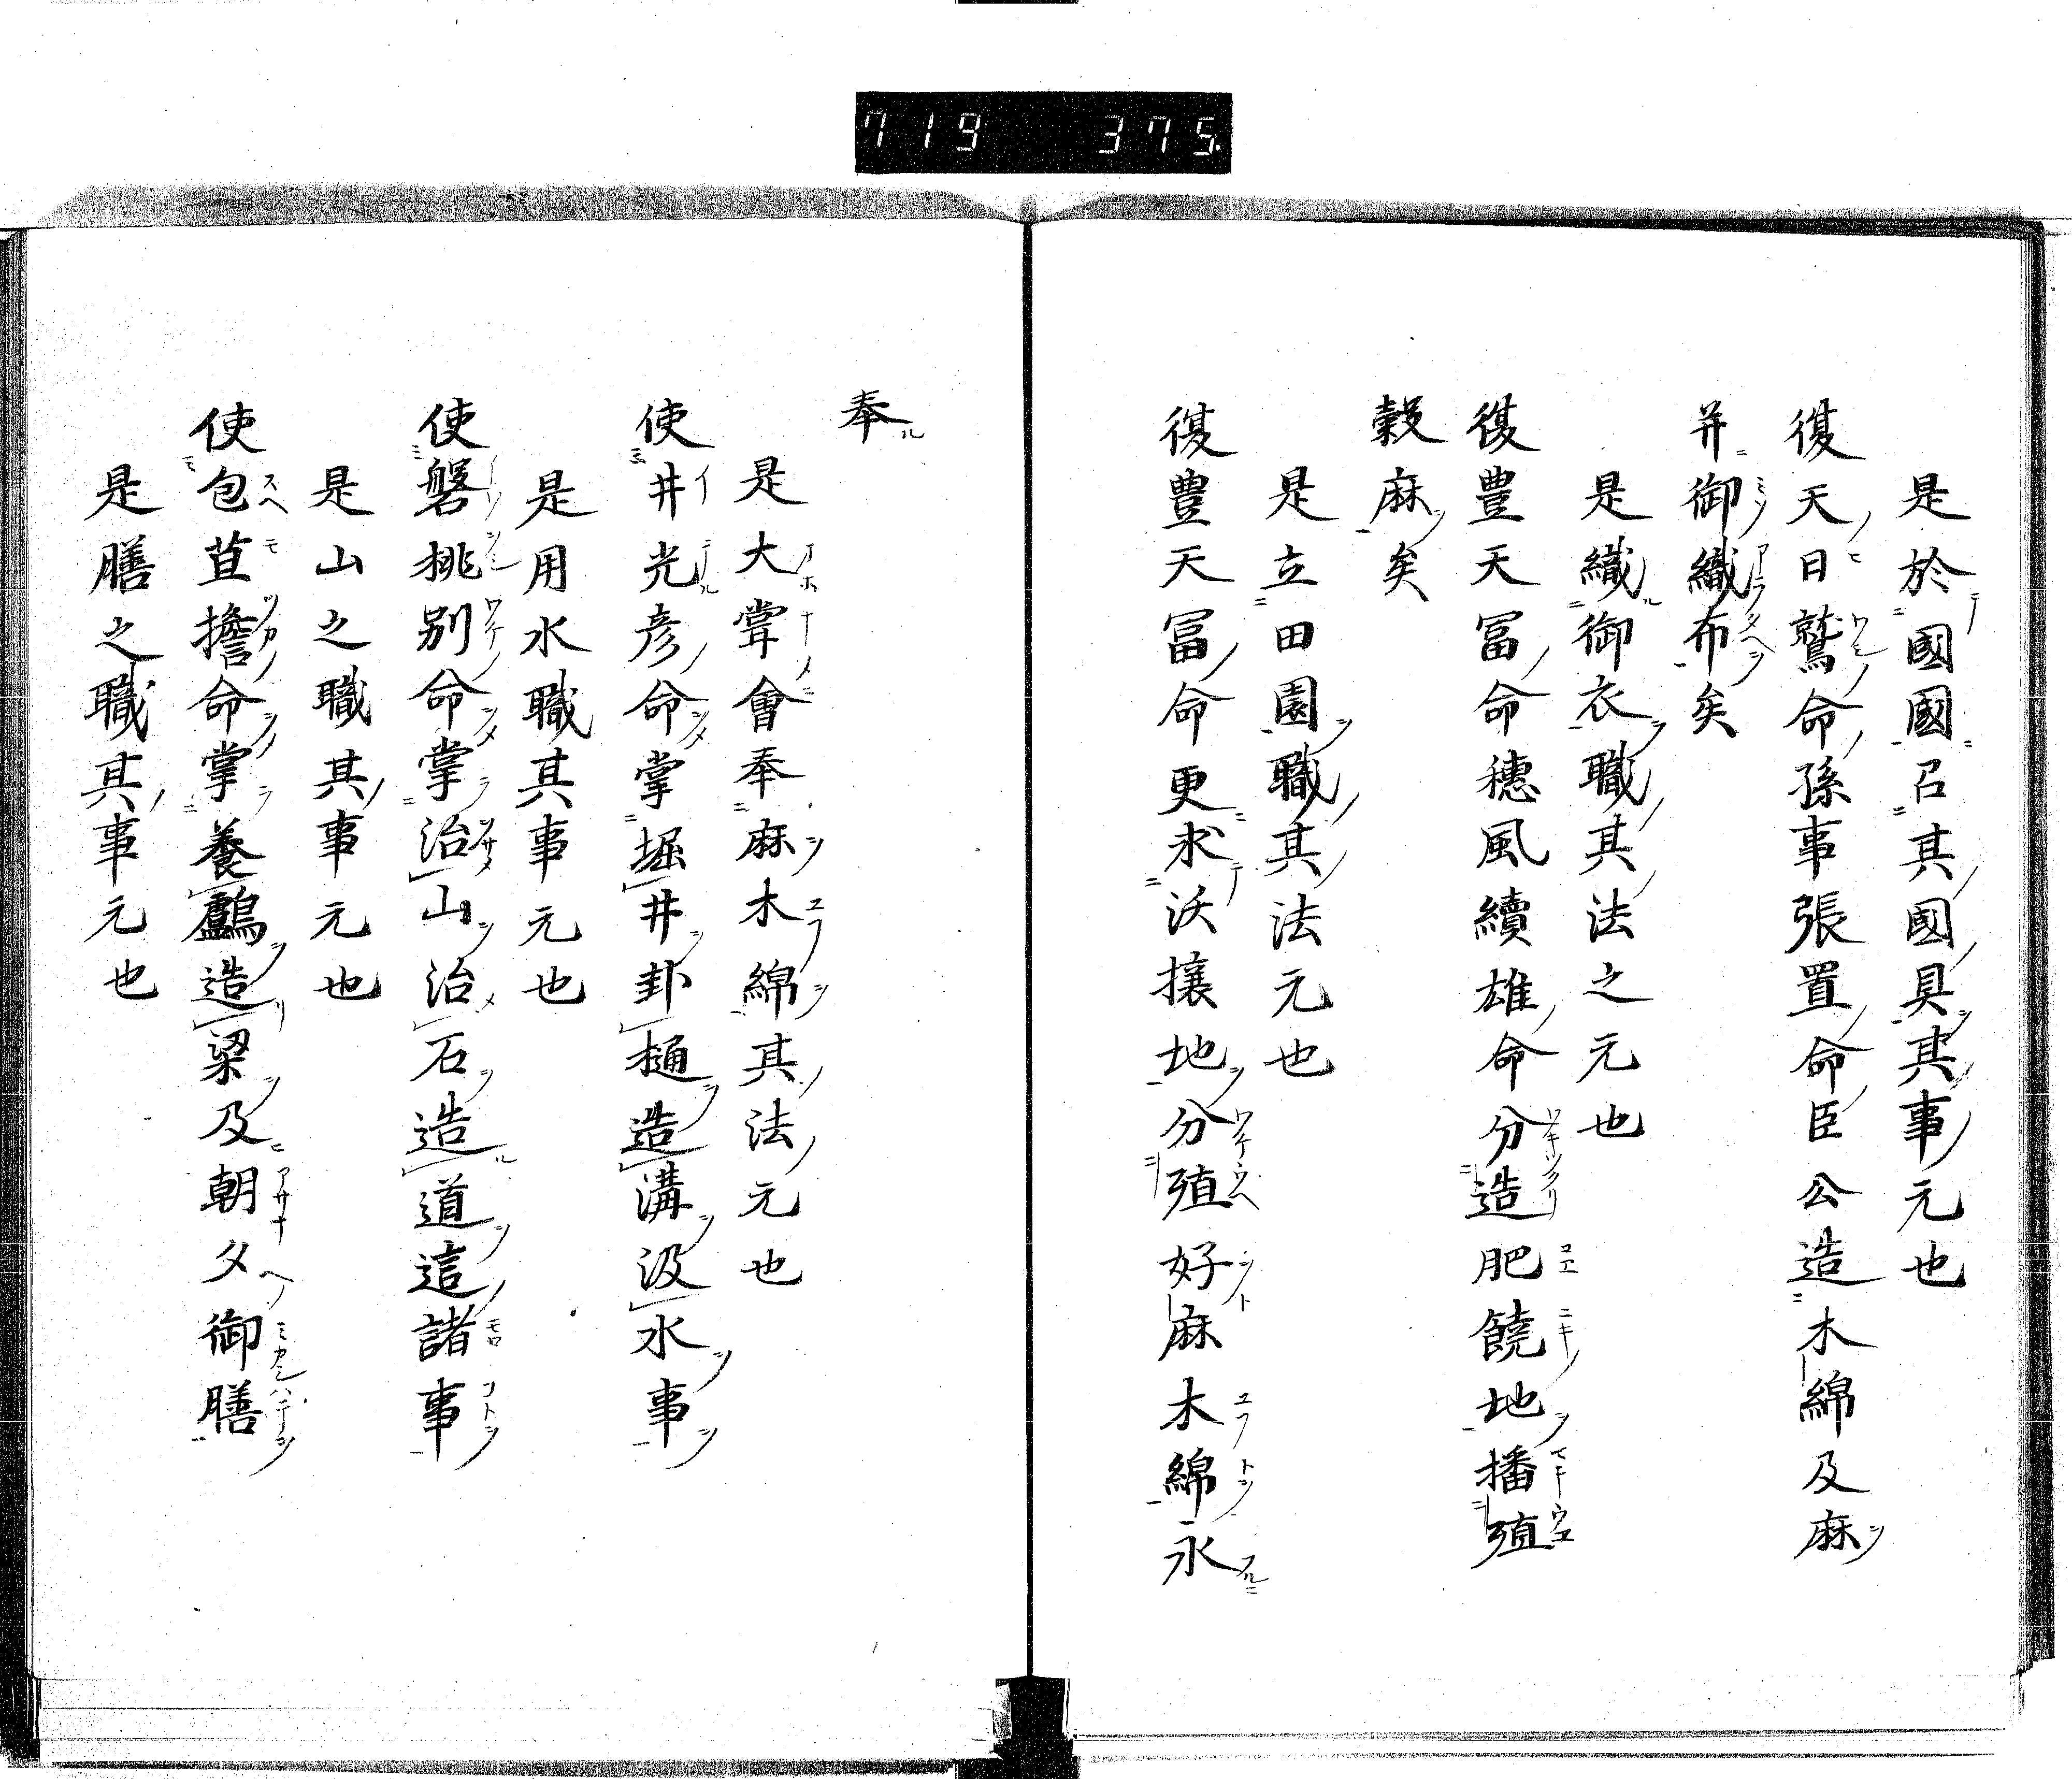 719 375
是於國國召其國具其事元也
復天日鷲命孫事張置命臣公造木綿及麻
并御織布矣
是織御衣職其法之元也
復豊天冨命穗風續雄命分造肥饒地播殖
穀麻矣
是立田園職其法元也
復豊天冨命更求沃攘地分殖好麻木綿永
奉
是大甞會奉麻木綿其法元也
使井光彦命掌堀井卦樋造溝汲水事
是用水職其事元也
使磐排別命掌治山治石造道這諸事
是山之職其事元也
使包苴擔命掌養鸕造梁及朝夕御膳
是膳之職其事元也